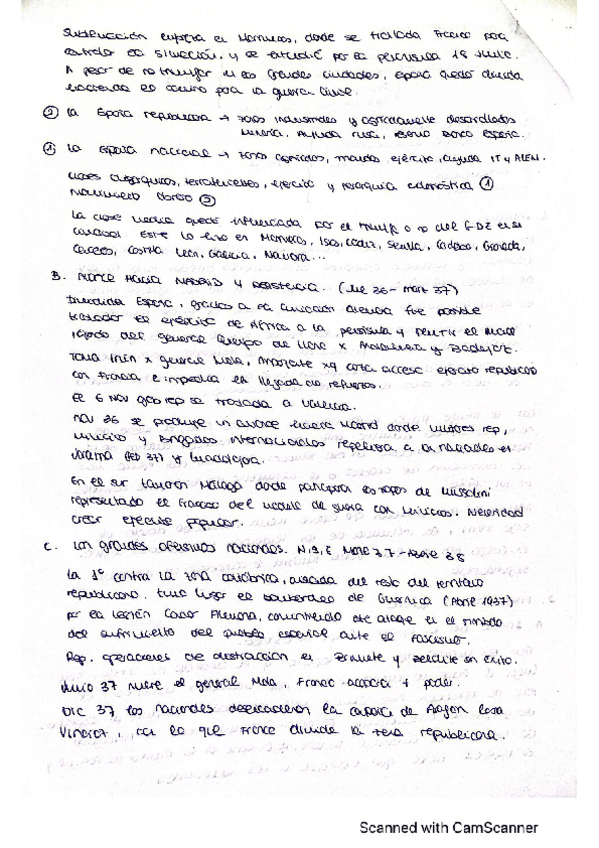 Sublevación empieza en Marruecos, donde se traslada Franco para
controlar la situación, y se extendió por la península 18 Julio.
A pesar de no triunfar en las grandes ciudades, España quedó dividida
haciendo el camino para la guerra civil.
② La España republicana → zonas industriales y desarrolladas
minería. Ayuda rusa, Banco España.
① La España nacional → zonas, mando ejército, ayuda IT y ALEM.
clases oligárquicas, terratenientes, ejército y jerarquía eclesiástica ①
Movimiento obrero ②
La clase media quedó influenciada por el triunfo o no del G.DE en su
Este lo hizo en Marruecos, Islas, Cádiz, Sevilla, Córdoba, Granada,
Cáceres, Castilla León, Galicia, Navarra...
B. Avance Hacia MADRID y resistencia. (Jul 36 - mar 37)
Dividida España, gracias a la aviación alemana fue posible
trasladar el ejército de África a la península y el
del general Queipo de Llano x Andalucía y Badajoz.
Toma Irún x general Mola, importante xq corta acceso ejército republicano
con Francia e impedía la llegada de refuerzos.
El 6 Nov gob rep se traslada a Valencia.
Nov 36 se produce un avance hacia Madrid donde militares rep,
milicias y Brigadas Internacionales a los nacionales en
Jarama (feb 37) y Guadalajara.
En el sur tomaron Málaga donde participan las tropas de Mussolini
representado el fracaso del modelo de guerra con milicias. Necesidad
crear ejército popular.
C. Las grandes ofensivas nacionales. N, S, E Marzo 37 - Abril 38
La 1º contra la zona cantábrica, aislada del resto del territorio
republicano. Tuvo lugar el bombardeo de Guernica (Abril 1937)
por la Legión Condor Alemana, convirtiendo este ataque en el símbolo
del sufrimiento del pueblo español ante el fascismo.
Rep. operaciones de distracción en Brunete y Belchite sin éxito.
Junio 37 muere el general Mola, Franco acapara + poder.
DIC 37 los nacionales desencadenan la campaña de Aragón hasta
Vinaroz, con lo que Franco divide la zona republicana.
Scanned with CamScanner